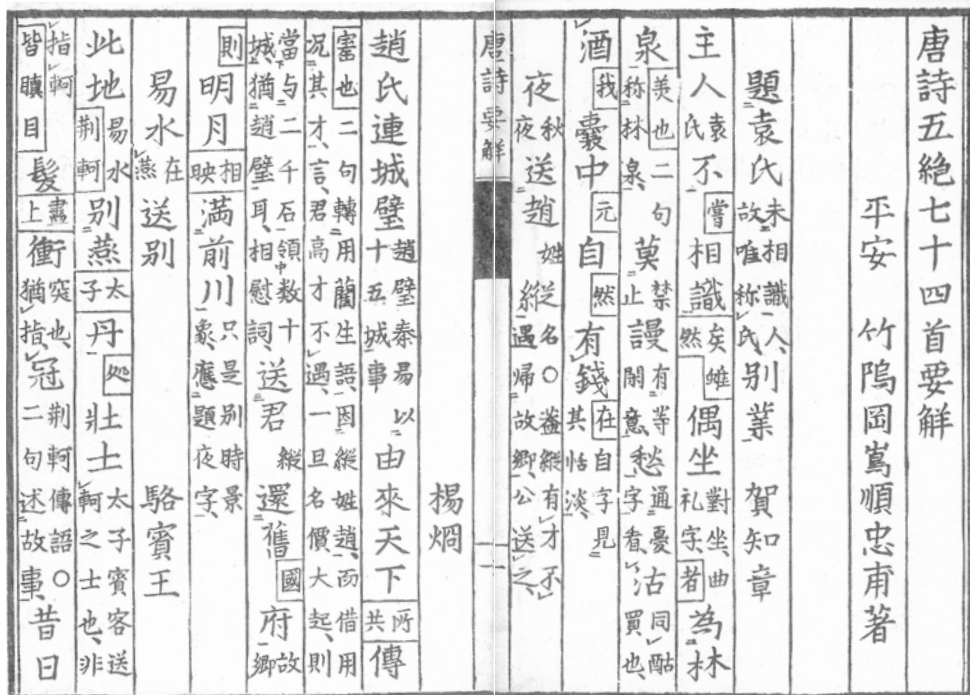 唐詩五絕七十四首要解
平安　竹隖岡嶌順忠甫著
題袁氏未相識人、故唯称氏、別業　賀知章
主人袁氏不嘗相識矣雖然偶坐對坐、曲礼字者為林
泉美也二句称林泉、莫禁止謾有等閑意、愁通憂字看、沽同酤買也、
酒我囊中元自然有錢在自字見其恬淡、
夜秋夜送趙姓縱名○蓋縱有才不遇帰故郷、公送之、
唐詩要解　一
楊烱
趙氏連城璧趙璧秦易以十五城事由來天下所共傳
寶也二句轉用藺生語、因縱姓趙、而借用况其才、言君高才不遇、一旦名價大起、則
當与二千石領中數十城、猶趙璧耳、相慰詞、送君縱還舊國府故郷
則明月相映滿前川只是別時景象、應題夜字、
易水在燕送別　駱賓王
此地易水荆軻別燕太子丹処壯士太子賓客送軻之士也、非
指軻皆瞋目髮盡上衝突也、猶指、冠荆軻傳語○二句述故事、昔日